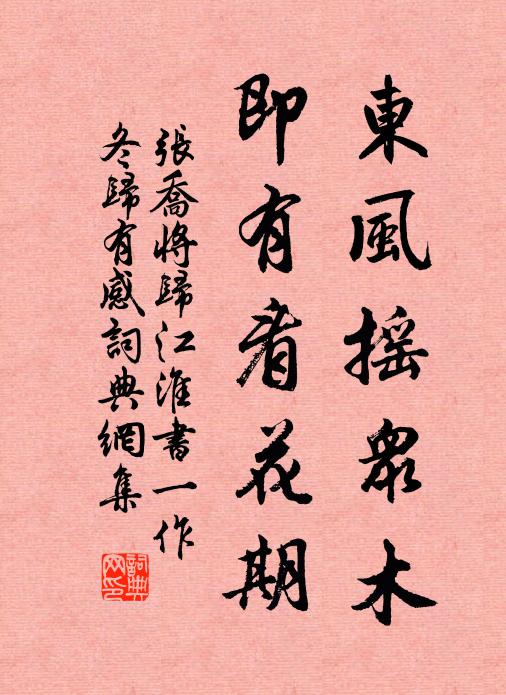 東風搖眾木
即有看花期
張喬將歸江淮書一作
冬歸有感詞典網集
詞典網印